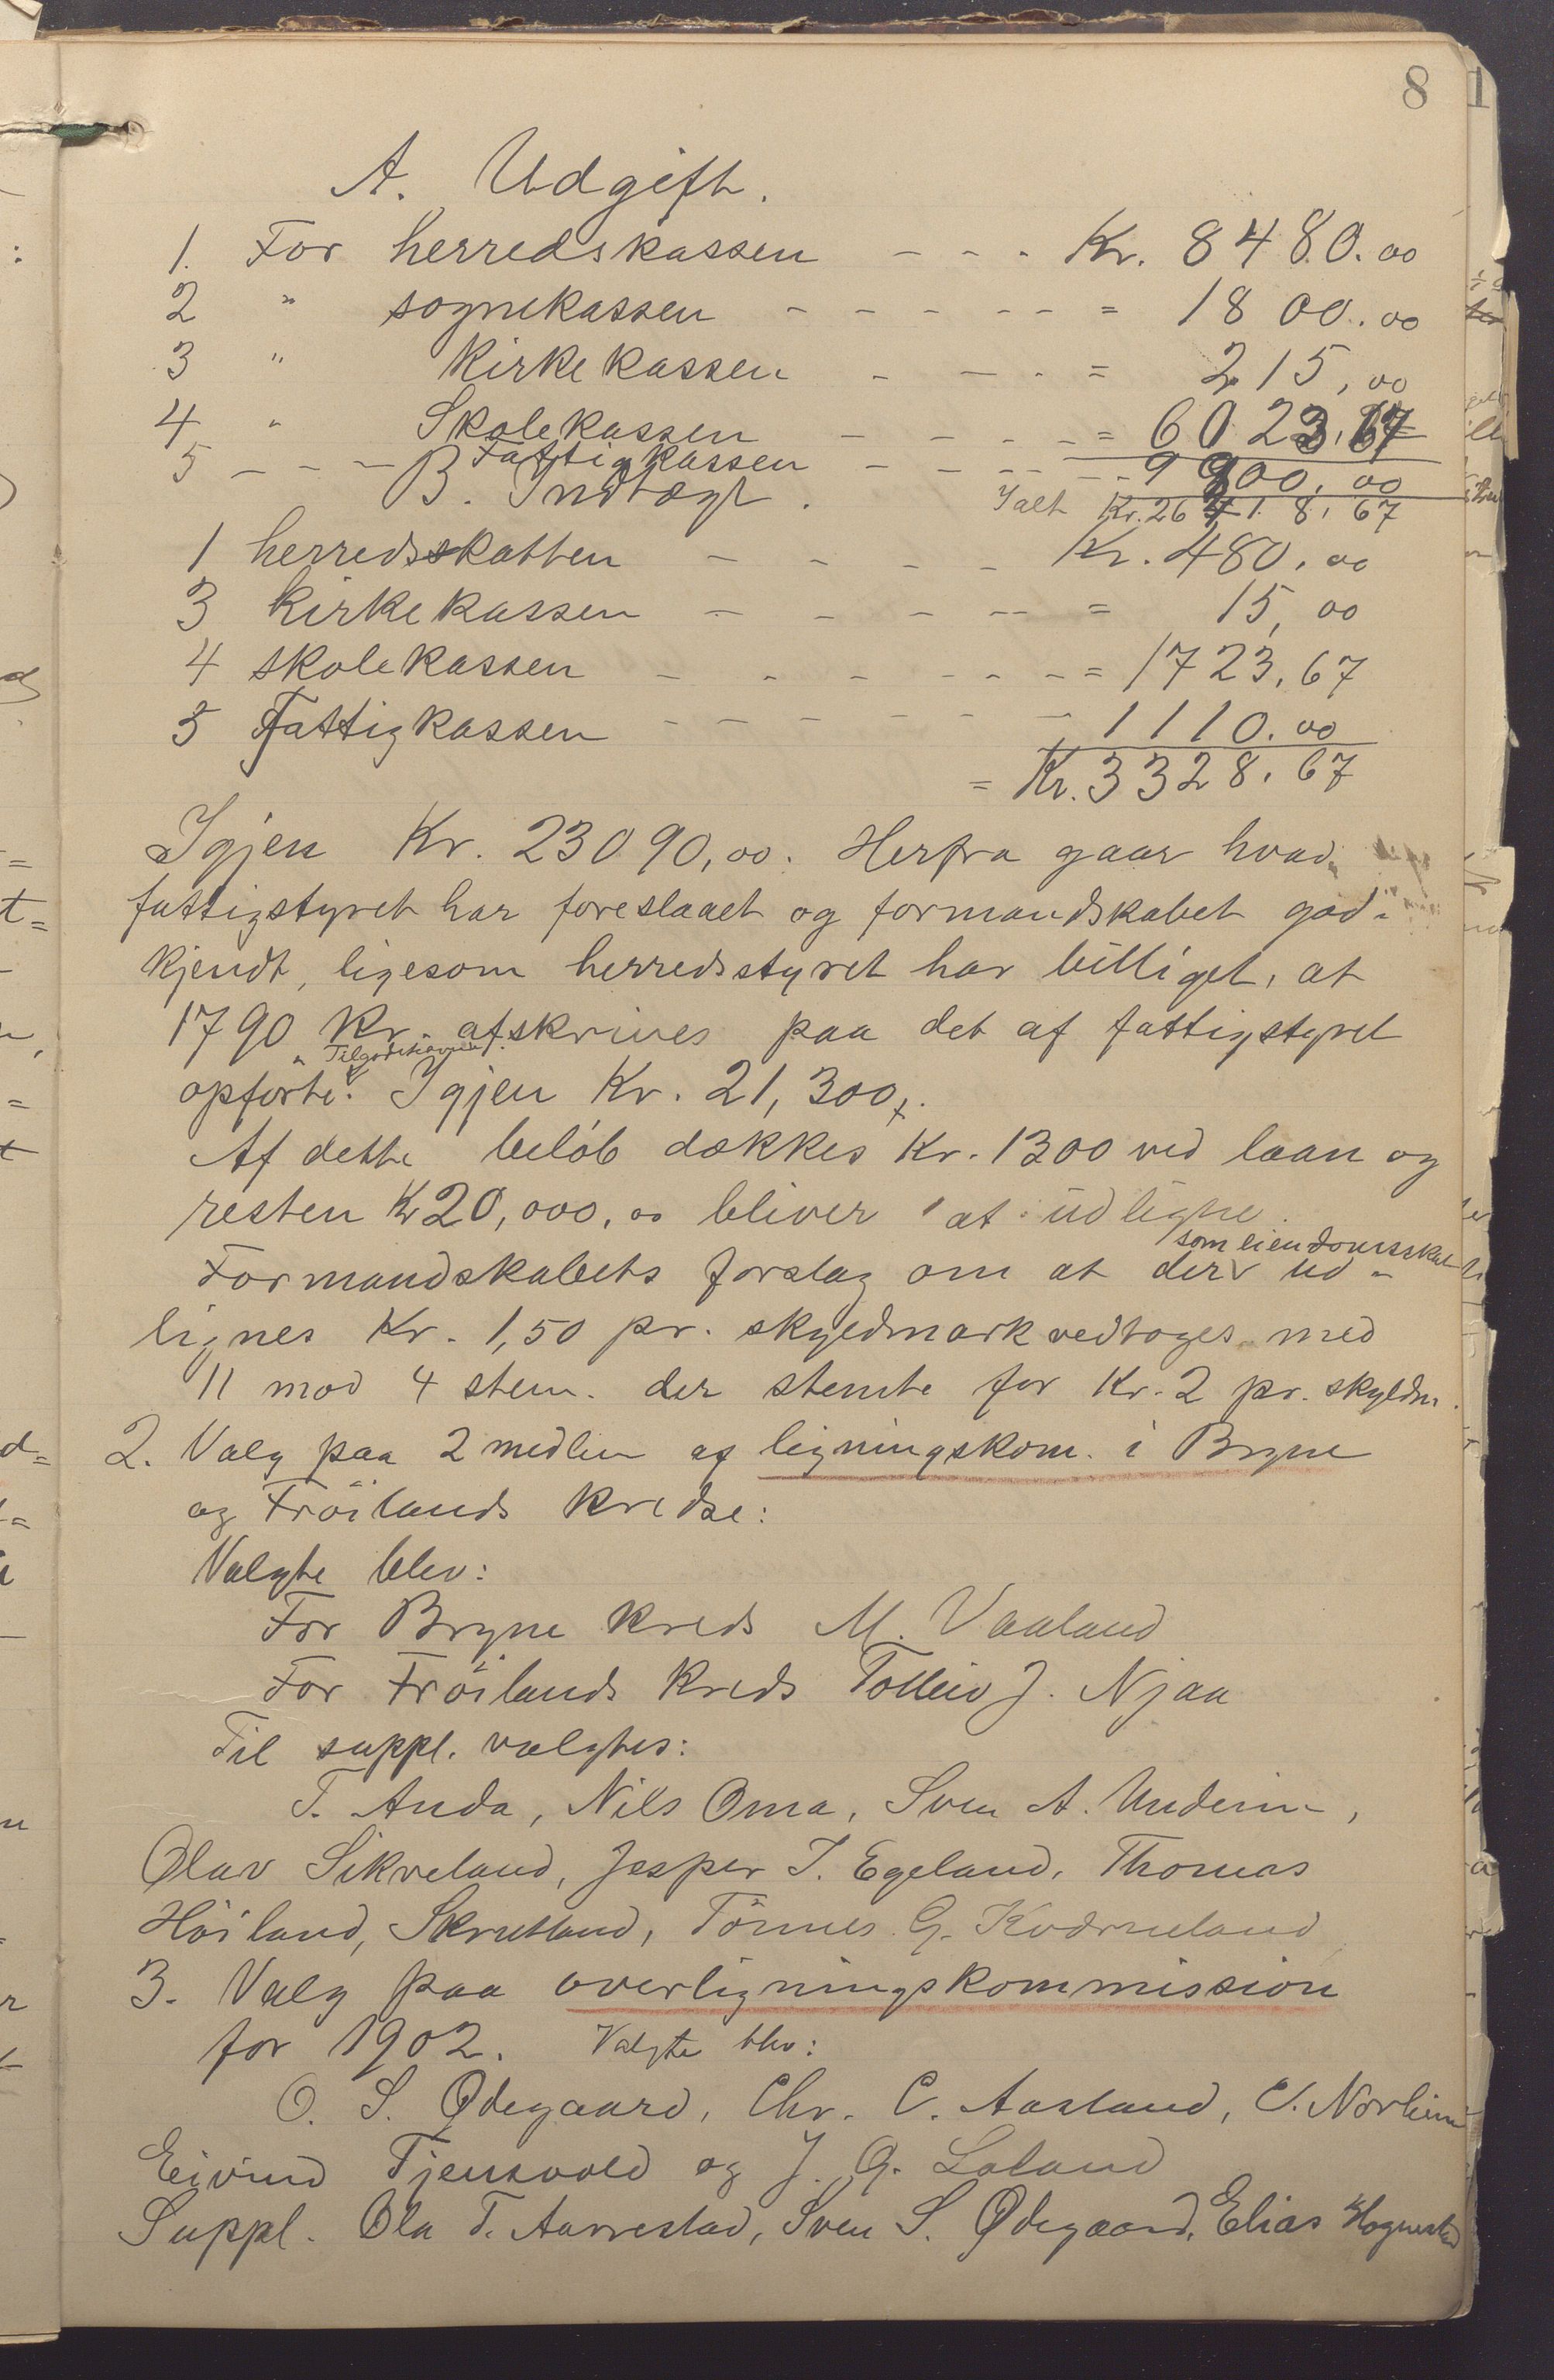 8
A. Udgift.
1. For herredskassen - - - Kr. 8480.00
2 " sognekassen - - - - - = 1800.00
3 " Kirkekassen - - - = 215,00
4 " Skolekassen - - - - = 6023,67
5 - - - Fattigkassen - - - - - 9900,00
B. Indtægt. Ialt Kr. 26418,67
1 herredsskatten - - - - Kr. 480.00
3 Kirkekassen - - - - = 15,00
4 skolekassen - - - - - - = 1723,67
5 Fattigkassen - - - - - - 1110.00
= Kr. 3328,67
Igjen Kr. 23090,00. Herfra gaar hvad
fattigstyret har foreslaaet og formandskabet god-
kjendt, ligesom herredsstyret har billiget, at
1790 Kr. afskrives paa det af fattigstyret
opførte "Tilgodehavende". Igjen Kr. 21,300,
Af dette beløb dækkes Kr. 1300 ved laan og
resten Kr 20,000,00 bliver at udligne.
Formandskabets forslag om at der som eiendomsskat ud-
lignes Kr. 1,50 pr. skyldmark vedtoges med
11 mod 4 stem. der stemte for Kr. 2 pr. skyldm.
2. Valg paa 2 medlem af ligningskom. i Bryne
og Fröilands kredse:
Valgte blev:
For Bryne kreds M. Vaaland
For Fröilands kreds Tolleiv J. Njaa
Til suppl. valgtes:
T. Anda, Nils Oma, Sven A. Undeim,
Olav Sikveland, Jesper I. Egeland, Thomas
Höiland, Skrudland, Tönnes G. Kværneland
3. Valg paa overligningskommission
for 1902. Valgte blev:
O. S. Ødegaard, Chr. C. Aasland, E. Norheim
Eivind Tjensvold og J. G. Laland
Suppl. Ola T. Aarrestad, Sven S. Ødegaard, Elias Hognestad